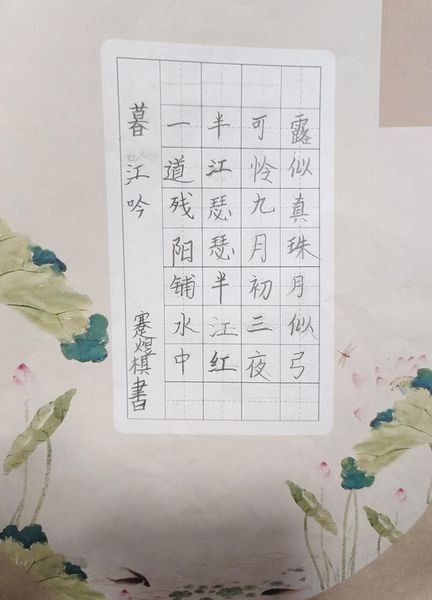 暮江吟
一道残阳铺水中
半江瑟瑟半江红
可怜九月初三夜
露似真珠月似弓
棋書